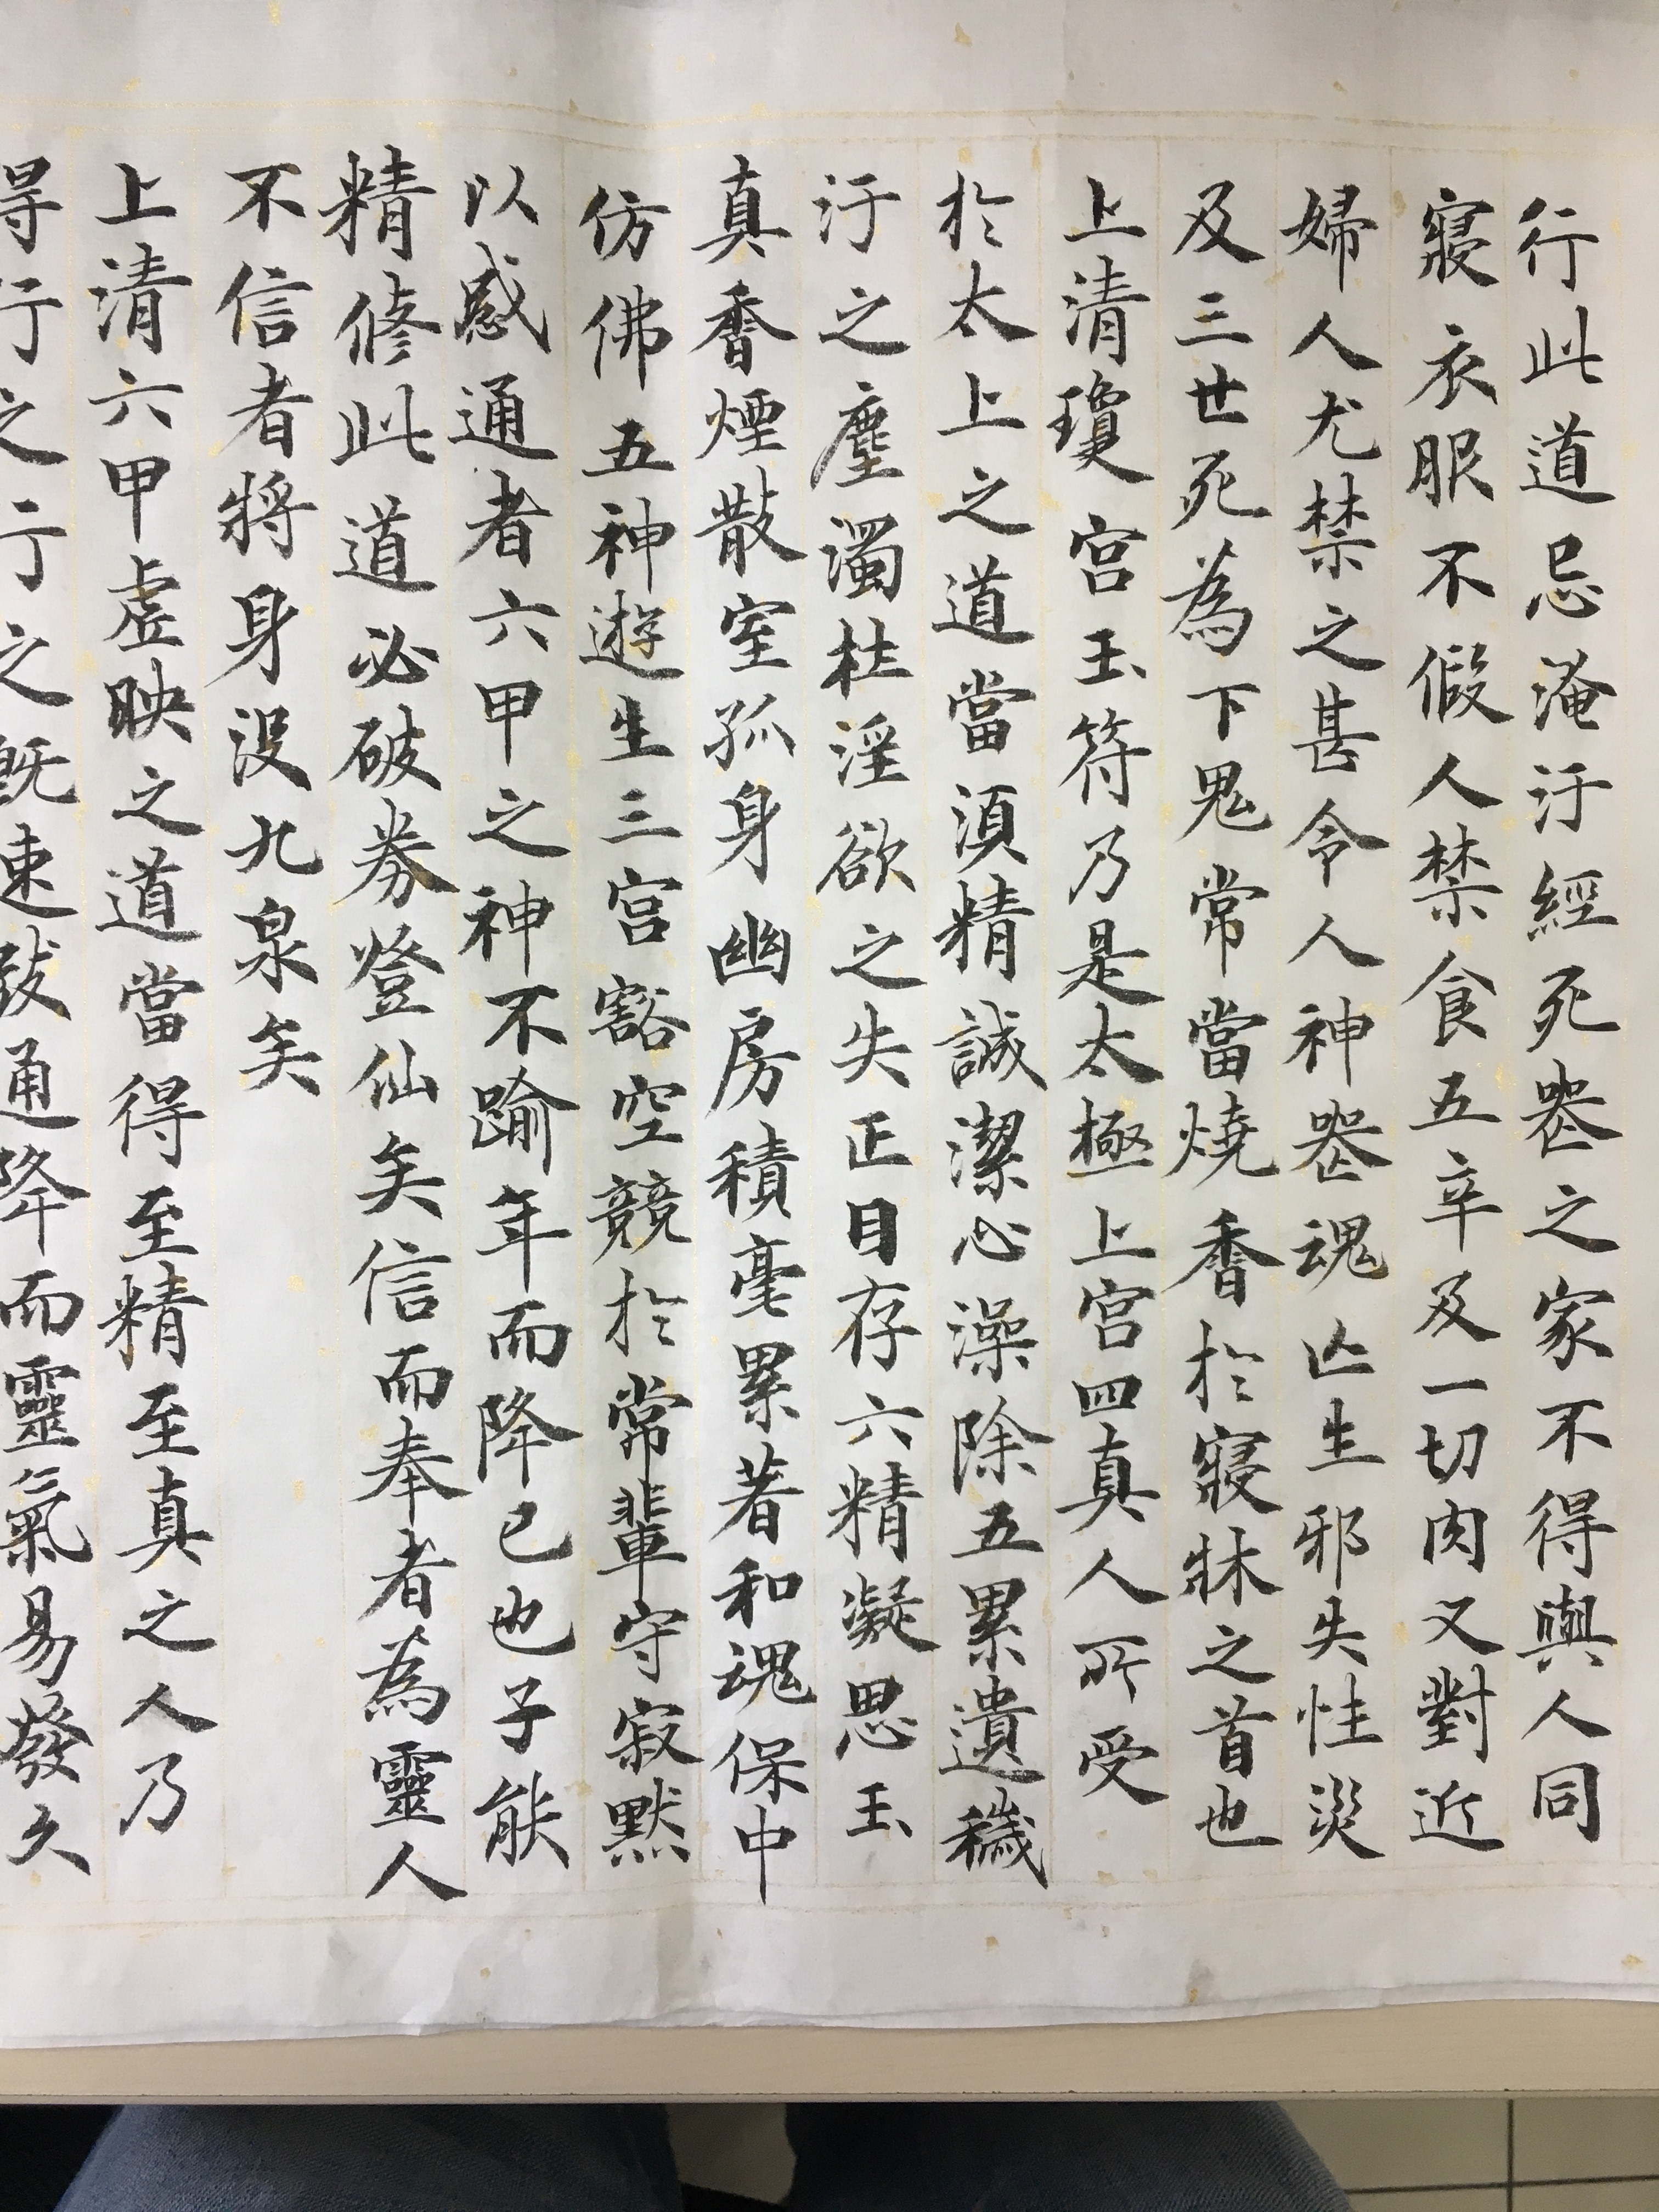 行此道忌淹汙經死喪之家不得與人同
寢衣服不假人禁食五辛及一切肉又對近
婦人尤禁之甚令人神喪魂亡生邪失性災
及三世死為下鬼常當燒香於寢牀之首也
上清瓊宮玉符乃是太極上宮四真人所受
於太上之道當須精誠潔心澡除五累遺穢
汙之塵濁杜淫欲之失正目存六精凝思玉
真香煙散室孤身幽房積毫累著和魂保中
仿佛五神遊生三宮豁空競於常輩守寂默
以感通者六甲之神不踰年而降已也子能
精修此道必破券登仙矣信而奉者為靈人
不信者將身沒九泉矣
上清六甲虛映之道當得至精至真之人乃
得行之行之既速致通降而靈氣易發久